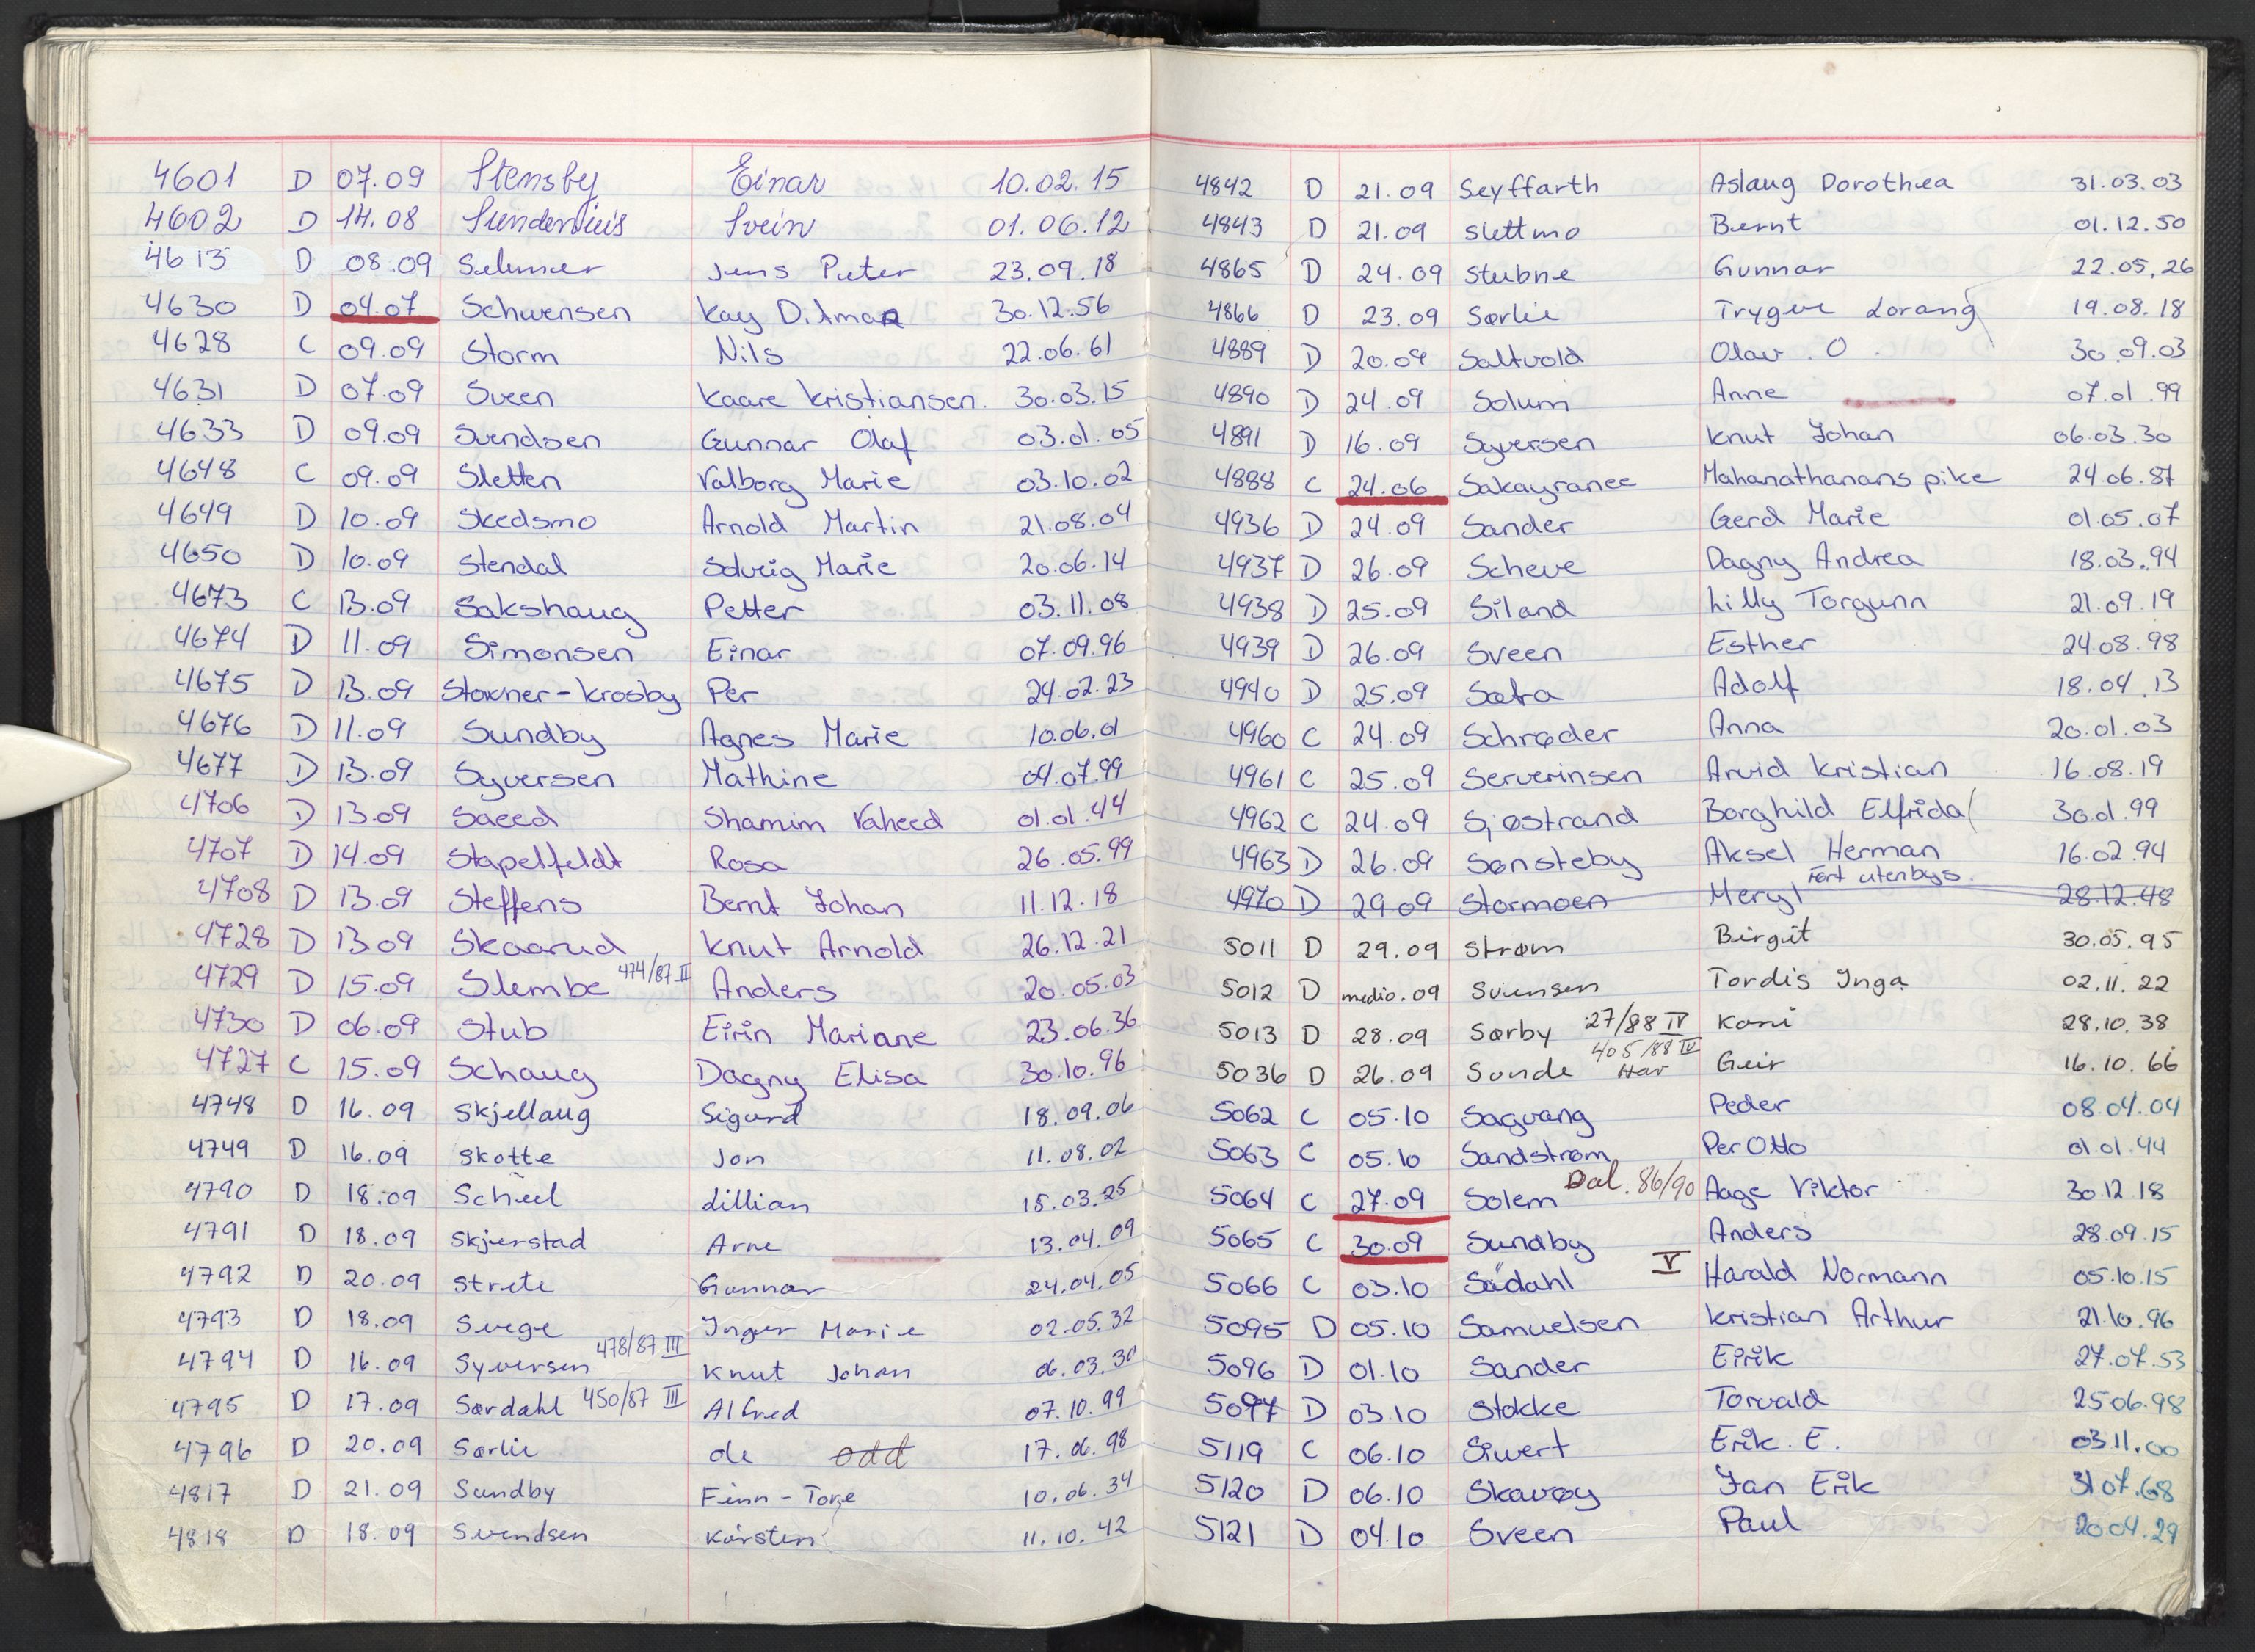 4601 D 07.09 Stensby Einar 10.02.15
4602 D 14.08 Svein 01.06.12
4613 D 08.09 Selmer Jens Peter 23.09.18
4630 D 04.07 Schwensen Kay Ditmar 30.12.56
4628 C 09.09 Storm Nils 22.06.61
4631 D 07.09 Sveen Kaare Kristiansen. 30.03.15
4633 D 09.09 Svendsen Gunnar Olaf 03.01.05
4648 C 09.09 Sletten Valborg Marie 03.10.02
4649 D 10.09 Skedsmo Arnold Martin 21.08.04
4650 D 10.09 Stendal Solveig Marie 20.06.14
4673 C 13.09 Sakshaug Petter 03.11.08
4674 D 11.09 Simonsen Einar 07.09.96
4675 D 13.09 Stoxner-Krosby Per 24.02.23
4676 D 11.09 Sundby Agnes Marie 10.06.01
4677 D 13.09 Syversen Mathine 04.07.99
4706 D 13.09 Saeed Shamim Vaheed 01.01.44
4707 D 14.09 Stapelfeldt Rosa 26.05.99
4708 D 13.09 Steffens Bernt Johan 11.12.18
4728 D 13.09 Skaarud Knut Arnold 26.12.21
4729 D 15.09 Slembe 474/87 II Anders 20.05.03
4730 D 06.09 Stub Eirin Mariane 23.06.36
4727 C 15.09 Schaug Dagny Elisa 30.10.96
4748 D 16.09 Skjellaug Sigurd 18.09.06
4749 D 16.09 Skotte Jon 11.08.02
4790 D 18.09 Scheel Lillian 15.03.25
4791 D 18.09 Skjerstad Arne 13.04.09
4792 D 20.09 Strete Gunnar 24.04.05
4793 D 18.09 Svege Inger Marie 02.05.32
4794 D 16.09 Syversen 478/87 III Knut Johan 06.03.30
4795 D 17.09 Sørdahl 450/87 III Alfred 07.10.99
4796 D 20.09 Sørlie de odd 17.06.98
4817 D 21.09 Sundby Finn-Tore 10.06.34
4818 D 18.09 Svendsen Karsten 11.10.42
4842 D 21.09 Seyffarth Aslaug Dorothea 31.03.03
4843 D 21.09 Slettmo Bernt 01.12.50
4865 D 24.09 Stubne Gunnar 22.05.26
4866 D 23.09 Sørlie Trygve Lorang 19.08.18
4889 D 20.09 Saltvold Olav. O. 30.09.03
4890 D 24.09 Solum Anne 07.01.99
4891 D 16.09 Syversen Knut Johan 06.03.30
4888 C 24.06 Sakayranee Mahanathanans pike 24.06.87
4936 D 24.09 Sander Gerd Marie 01.05.07
4937 D 26.09 Scheve Dagny Andrea 18.03.94
4938 D 25.09 Siland Lilly Torgunn 21.09.19
4939 D 26.09 Sveen Esther 24.08.98
4940 D 25.09 Sætra Adolf 18.04.13
4960 C 24.09 Schrøder Anna 20.01.03
4961 C 25.09 Serverinsen Arvid Kristian 16.08.19
4962 C 24.09 Sjøstrand Borghild Elfrida 30.01.99
4963 D 26.09 Sønsteby Aksel Herman 16.02.94
Ført utenbys.
4970 D 29.09 Stormoen Meryl 28.12.48
5011 D 29.09 Strøm Birgit 30.05.95
5012 D medio.09 Svensen Tordis Inga 02.11.22
5013 D 28.09 Sørby 27/88 IV Kari 28.10.38
405/88 IV
5036 D 26.09 Sunde Har Geir 16.10.66
5062 C 05.10 Sagvang Peder 08.04.04
5063 C 05.10 Sandstrøm Per Otto 01.01.44
5064 C 27.09 Solem Dal. 86/90 Aage Viktor 30.12.18
5065 C 30.09 Sundby Anders 28.09.15
5066 C 03.10 Sådahl V Harald Normann 05.10.15
5095 D 05.10 Samuelsen Kristian Arthur 21.10.96
5096 D 01.10 Sander Eirik 27.07.53
5097 D 03.10 Stokke Torvald 25.06.98
5119 C 06.10 Siwert Erik. E. 03.11.00
5120 D 06.10 Skavøy Jan Erik 31.07.68
5121 D 04.10 Sveen Paul 20.04.29